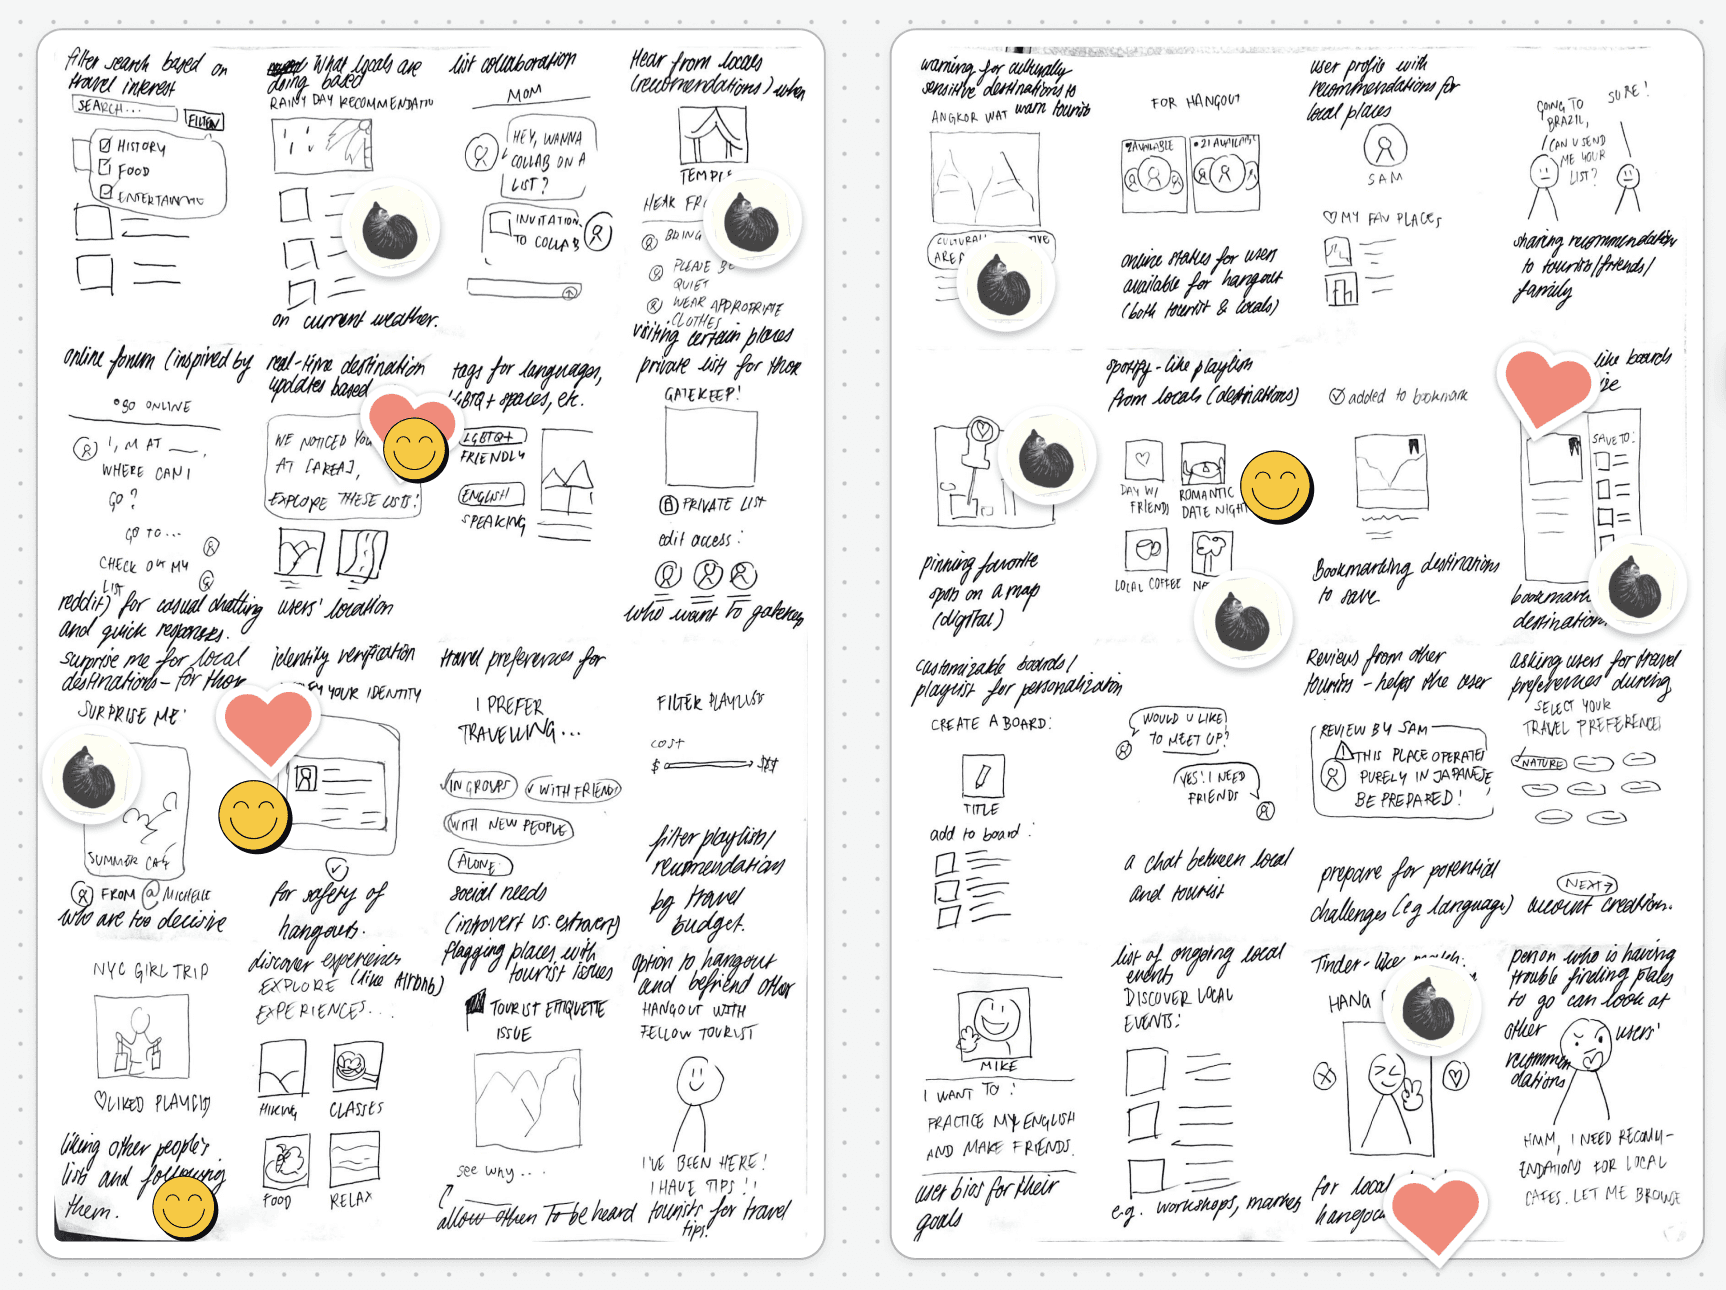 filter search based on
travel interest
SEARCH...
FILTER
HISTORY
FOOD
ENTERTAINMENT
What locals are
doing based
RAINY DAY RECOMMENDATION
on current weather.
list collaboration
MOM
HEY, WANNA
COLLAB ON A
LIST?
INVITATION
TO COLLAB
Hear from locals
(recommendations) when
TEMPLE
HEAR
BRING
PLEASE BE
QUIET
WEAR APPROPRIATE
CLOTHES
visiting certain places
online forum (inspired by
GO ONLINE
I'M AT ___.
WHERE CAN I
GO?
GO TO...
CHECK OUT MY
LIST
reddit) for casual chatting
and quick responses.
real-time destination
updates based
WE NOTICED YOU
AT [AREA],
EXPLORE THESE LISTS!
users' location
tags for languages,
LGBTQ+ spaces, etc.
LGBTQ+
FRIENDLY
ENGLISH
SPEAKING
private lists for those
GATEKEEP!
PRIVATE LIST
edit access:
who want to gatekeep
surprise me for local
destinations - for those
SURPRISE ME!
SUMMER CAFE
FROM @MICHELLE
who are too decisive
identity verification
YOUR IDENTITY
for safety of
hangouts.
travel preferences for
I PREFER
TRAVELLING...
IN GROUPS
WITH FRIENDS
WITH NEW PEOPLE
ALONE
social needs
(introvert vs. extrovert)
FILTER PLAYLISTS
COST
$
$$$
filter playlists/
recommendations
by travel
budget.
NYC GIRL TRIP
LIKED PLAYLIST
liking other people's
lists and following
them.
discover experiences
(like Airbnb)
EXPLORE
EXPERIENCES...
HIKING
CLASSES
FOOD
RELAX
flagging places with
tourist issues
TOURIST ETIQUETTE
ISSUE
see why...
allow others To be heard
option to hangout
and befriend other
HANGOUT WITH
FELLOW TOURIST
I'VE BEEN HERE!
I HAVE TIPS!!
tourists for travel
tips!
warning for culturally
sensitive destinations to
warn tourists
ANGKOR WAT
AREA
FOR HANGOUT
AVAILABLE
21 AVAILABLE
online status for users
available for hangout
(both tourist & locals)
user profile with
recommendations for
local places
SAM
MY FAV PLACES
GOING TO
BRAZIL,
CAN U SEND
ME YOUR
LIST?
SURE!
sharing recommendation
to tourists/friends/
family
pinning favorite
spots on a map
(digital)
spotify-like playlists
from locals (destinations)
DAY W/
FRIENDS
ROMANTIC
DATE NIGHT
LOCAL COFFEE
added to bookmark
Bookmarking destinations
to save
like boards
SAVE TO:
destination
customizable boards/
playlist for personalization
CREATE A BOARD:
TITLE
add to board:
WOULD U LIKE
TO MEET UP?
YES! I NEED
FRIENDS
a chat between local
and tourist
Reviews from other
tourists - helps the user
REVIEW BY SAM
THIS PLACE OPERATES
PURELY IN JAPANESE,
BE PREPARED!
prepare for potential
challenges (e.g language)
asking users for travel
preferences during
SELECT YOUR
TRAVEL PREFERENCES
NATURE
NEXT→
account creation.
MIKE
I WANT TO:
PRACTICE MY ENGLISH
AND MAKE FRIENDS.
user bios for their
goals
list of ongoing local
events
DISCOVER LOCAL
EVENTS:
e.g. workshops, markets
Tinder-like
HANG
for local
hangouts
person who is having
trouble finding places
to go can look at
other users'
recommen
dations
HMM, I NEED RECOMM-
ENDATIONS FOR LOCAL
CAFES. LET ME BROWSE